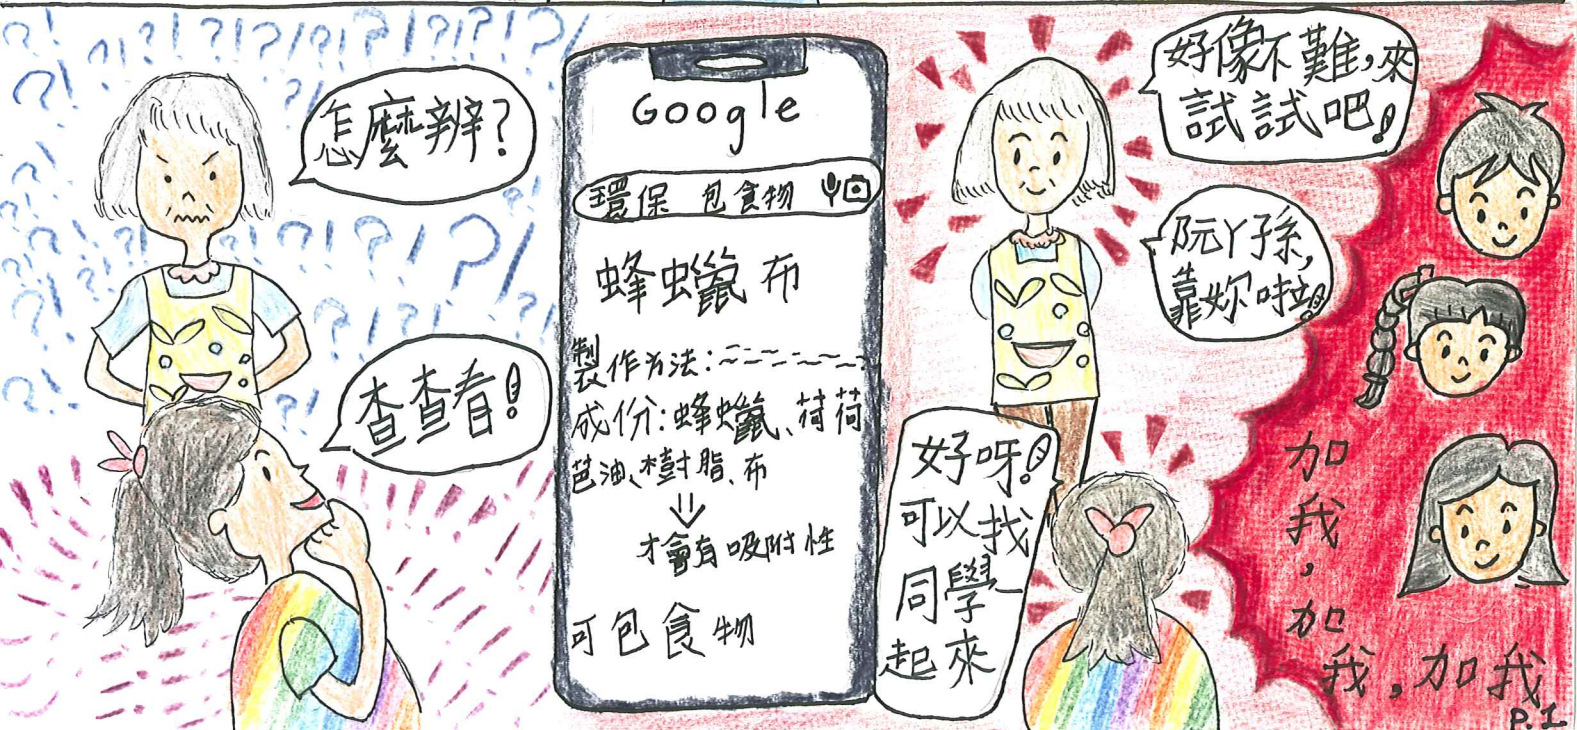 怎麼辦?
查查看!
Google
環保 包食物
蜂蠟布
製作方法:
成份:蜂蠟、荷荷
芭油、樹脂、布
才會有吸附性
可包食物
好像不難,來
試試吧!
阮ㄚ孫,
靠妳啦!
好呀!
可以找
同學一
起來
加
我,
加
我,加我
P.1